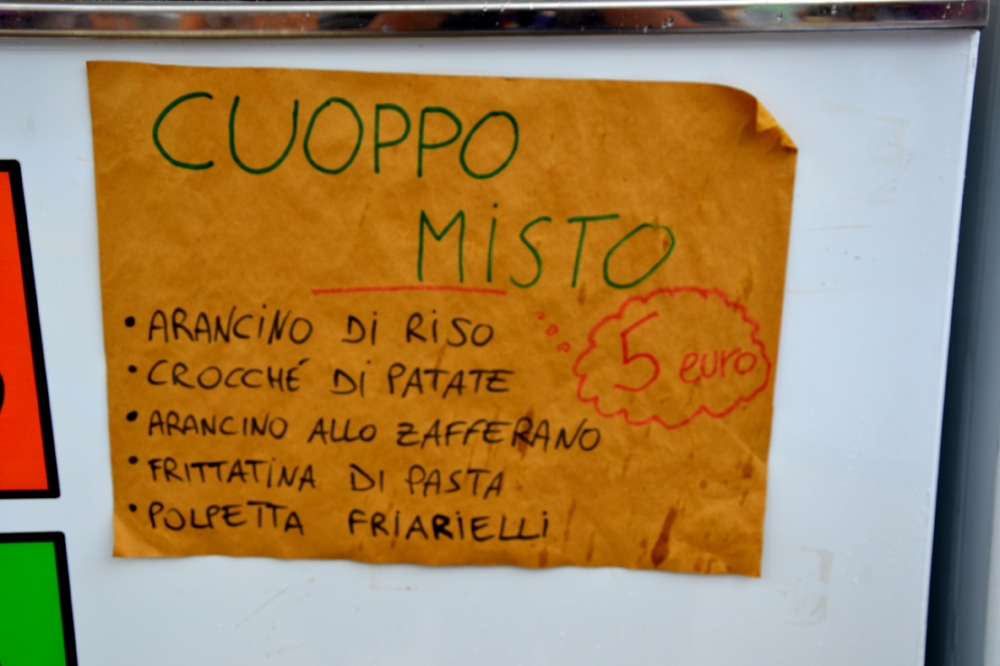 CUOPPO
MiSTO
• ARANCiNO Di RiSO
• CROCCHÉ Di PATATE
5 euro
• ARANCINO ALLO ZAFFERANO
• FRITTATiNA DI PASTA
• POLPETTA FRiARiELLi